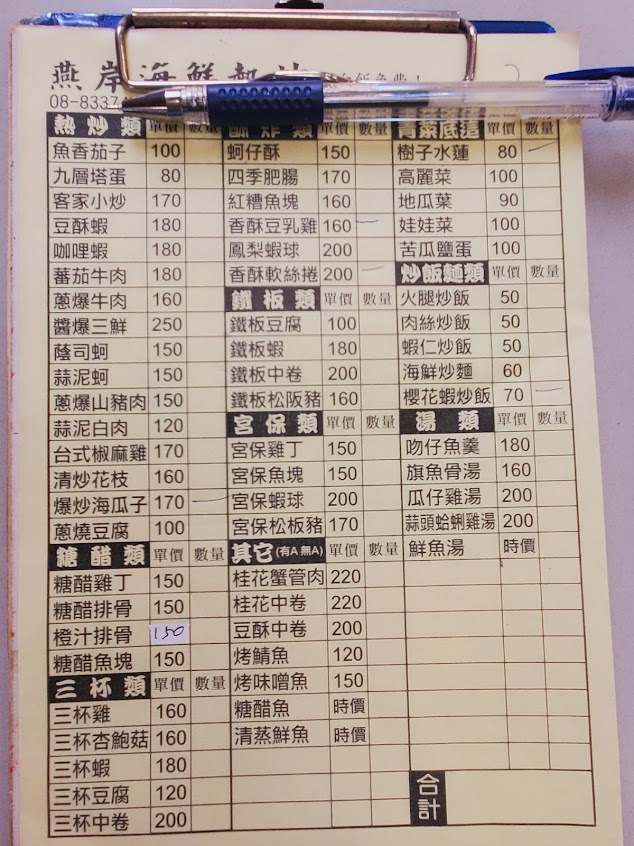 燕岸海鮮
08-8337
熱炒類 單價 數量
魚香茄子 100
九層塔蛋 80
客家小炒 170
豆酥蝦 180
咖哩蝦 180
蕃茄牛肉 180
蔥爆牛肉 160
醬爆三鮮 250
蔭司蚵 150
蒜泥蚵 150
蔥爆山豬肉 150
蒜泥白肉 120
台式椒麻雞 170
清炒花枝 160
爆炒海瓜子 170
蔥燒豆腐 100
糖醋類 單價 數量
糖醋雞丁 150
糖醋排骨 150
橙汁排骨 150
糖醋魚塊 150
三杯類 單價 數量
三杯雞 160
三杯杏鮑菇 160
三杯蝦 180
三杯豆腐 120
三杯中卷 200
酥炸類 單價 數量
蚵仔酥 150
四季肥腸 170
紅糟魚塊 160
香酥豆乳雞 160
鳳梨蝦球 200
香酥軟絲捲 200
鐵板類 單價 數量
鐵板豆腐 100
鐵板蝦 180
鐵板中卷 200
鐵板松阪豬 160
宮保類 單價 數量
宮保雞丁 150
宮保魚塊 150
宮保蝦球 200
宮保松板豬 170
其它(有A 無A) 單價 數量
桂花蟹管肉 220
桂花中卷 220
豆酥中卷 200
烤鯖魚 120
烤味噌魚 150
糖醋魚 時價
清蒸鮮魚 時價
青菜底這 單價 數量
樹子水蓮 80
高麗菜 100
地瓜葉 90
娃娃菜 100
苦瓜鹽蛋 100
炒飯麵類 單價 數量
火腿炒飯 50
肉絲炒飯 50
蝦仁炒飯 50
海鮮炒麵 60
櫻花蝦炒飯 70
湯類 單價 數量
吻仔魚羹 180
旗魚骨湯 160
瓜仔雞湯 200
蒜頭蛤蜊雞湯 200
鮮魚湯 時價
合計